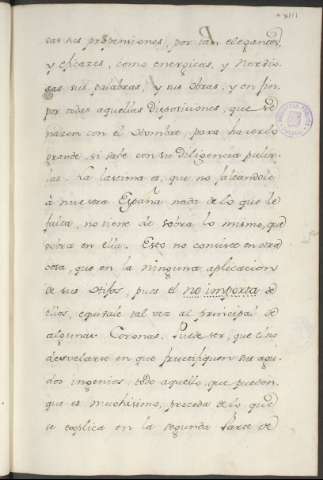 XIII
das sus propensiones, por tan elegantes,
y eficaces, como energicas, y nerdio-
sas sus palabras, y sus obras, y en fin,
por todas aquellas Disposiciones, que se
nacen con el Hombre, para hacerlo
grande, si sabe con su diligencia pulir-
las. La lastima es, que no faltandole
à nuestra España nada de lo que le
falta, no tiene de sobra lo mismo, que
sobra en ella. Esto no consiste en otra
cosa, que en la ninguna aplicacion
de sus Hijos, pues el no importa de
ellos, equivale tal vez al principal de
algunas Coronas. Puede ser, que el no
desvelarse en que fructifiquen sus agu-
dos ingenios, todo aquello, que puedan,
que es muchisimo, proceda de lo que
se explica en la segunda Parte de